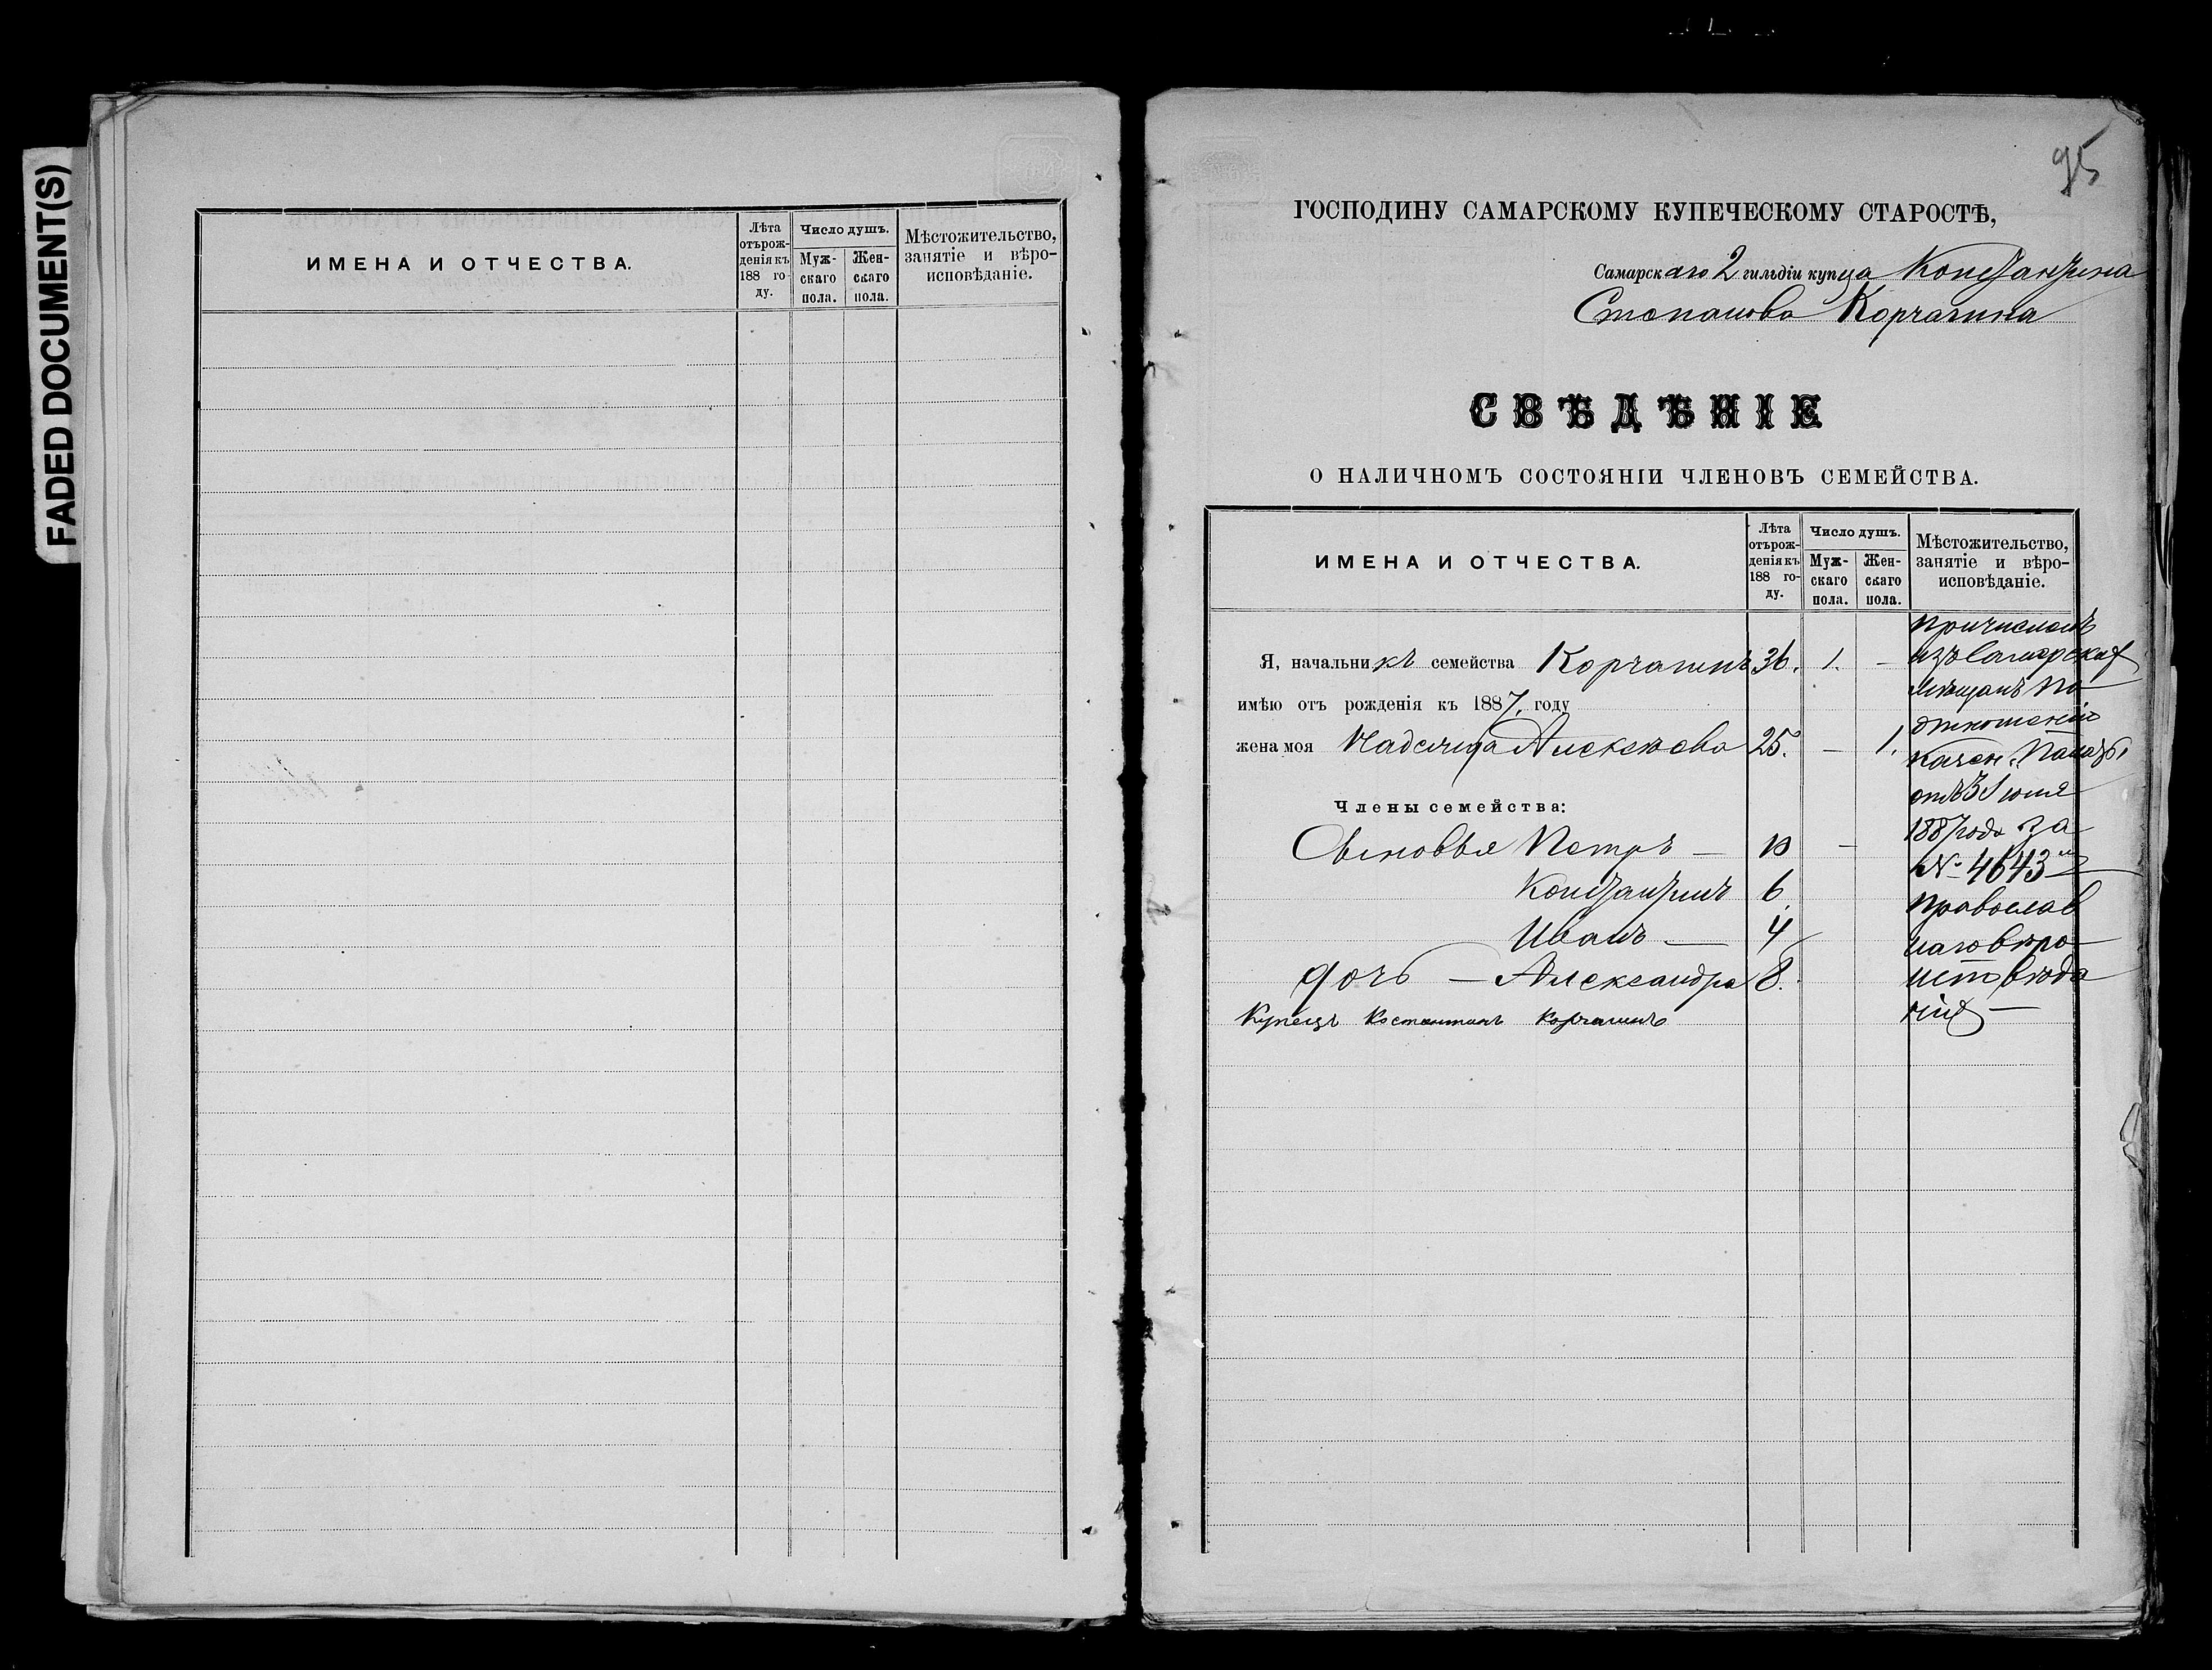 FADED DOCUMENT(S)
ИМЕНА И ОТЧЕСТВА.
Лѣта отърожденія къ 188 году.
Число душъ.
Мужскаго пола.
Женскаго пола.
Мѣстожительство, занятіе и вѣроисповѣданіе.
95
ГОСПОДИНУ САМАРСКОМУ КУПЕЧЕСКОМУ СТАРОСТѢ,
Самарскаго 2 гильдіи купца Константина
Степанова Корчагина
СВѢДѢНІЕ
О НАЛИЧНОМЪ СОСТОЯНІИ ЧЛЕНОВЪ СЕМЕЙСТВА.
ИМЕНА И ОТЧЕСТВА.
Лѣта отърожденія къ 188 году.
Число душъ.
Мужскаго пола.
Женскаго пола.
Мѣстожительство, занятіе и вѣроисповѣданіе.
Я, начальникъ семейства Корчагинъ 36. 1. —
имѣю отъ рожденія къ 1887. году
жена моя Надежда Алексѣева 25. — 1.
Члены семейства:
Сыновья Петръ — 10 —
Константинъ 6.
Иванъ — 4
дочь — Александра 8.
Купецъ Костантинъ Корчагинъ
Причисленъ
изъ Самарских
мѣщанъ по
отношенію
Казен. Палаты
отъ 31 юля
1887 года за
№ 4643
православ
наго вѣро
исповѣда
нія —